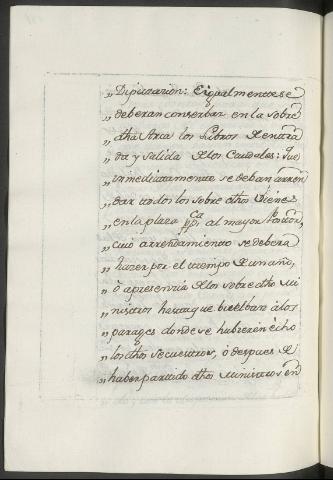 „ Diputazion: Eigualmente se
„ deberan conserbar en la sobre
„ dha Arca los Libros de entra
„ da y salida de los Caudales: Que
„ inmediatamente se deban arren
„ dar todos los sobre dhos Vienes
„ en la plaza Ca al mayor Postor,
„ cuio arrendamiento se debera
„ hazer por el tiempo de un año,
„ ô apresenzia de los sobre dho Mi
„ nistros hasta que buelban â los
„ parages donde se hubieren echo
„ los dhos Secuestros, ô despues de
„ haber partido dhos Ministros en